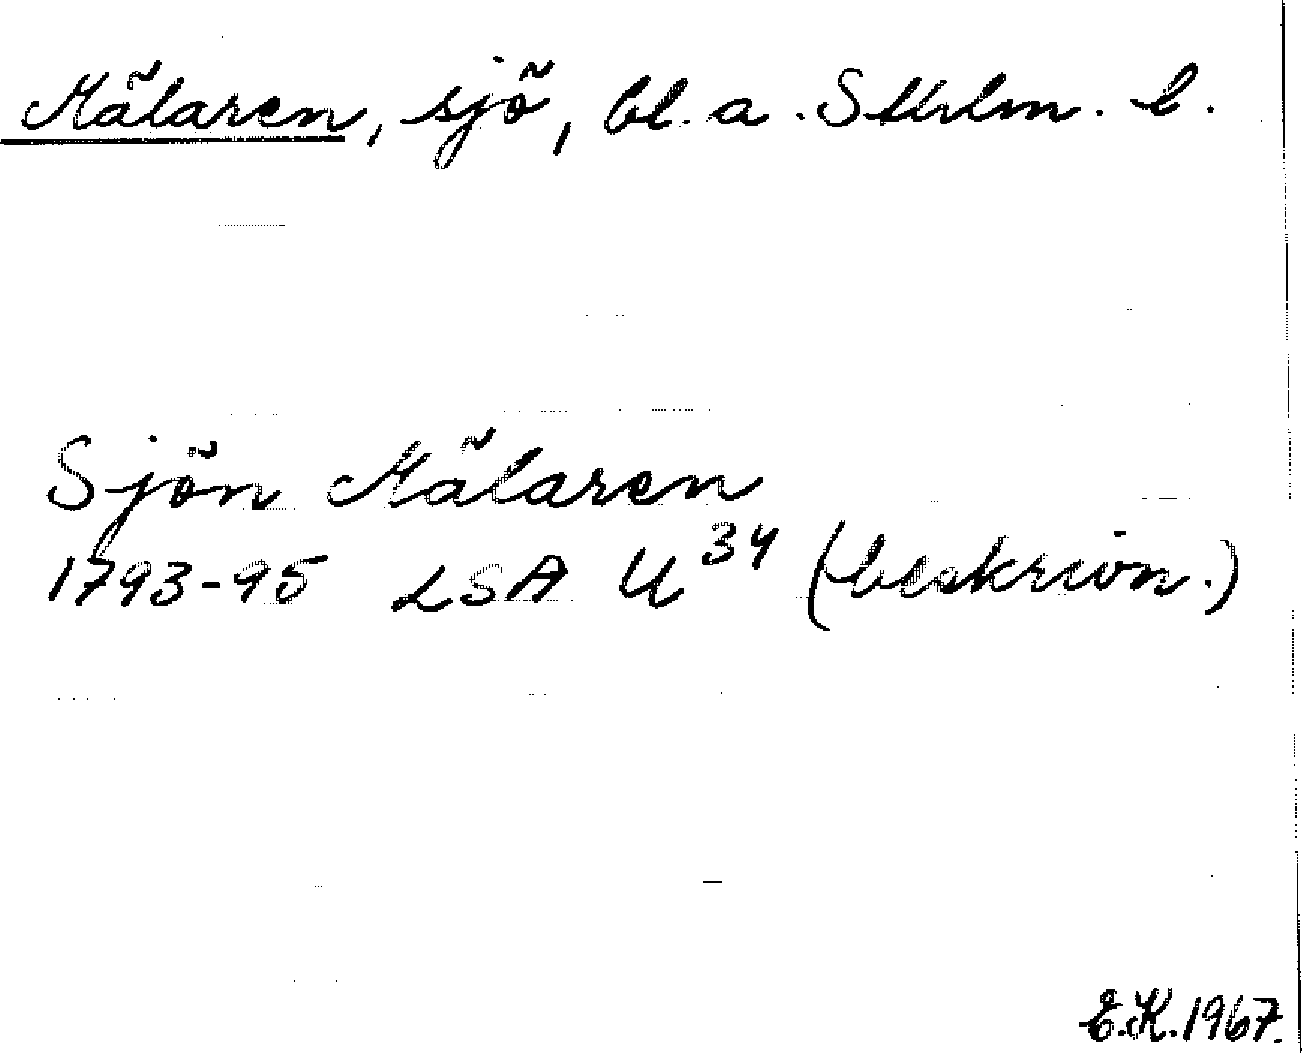 Mälaren, sjö, bl. a. Sthlm. l.
Sjön Mälaren
1793-95 LSA U 34 (beskrivn.)
E.K. 1967.